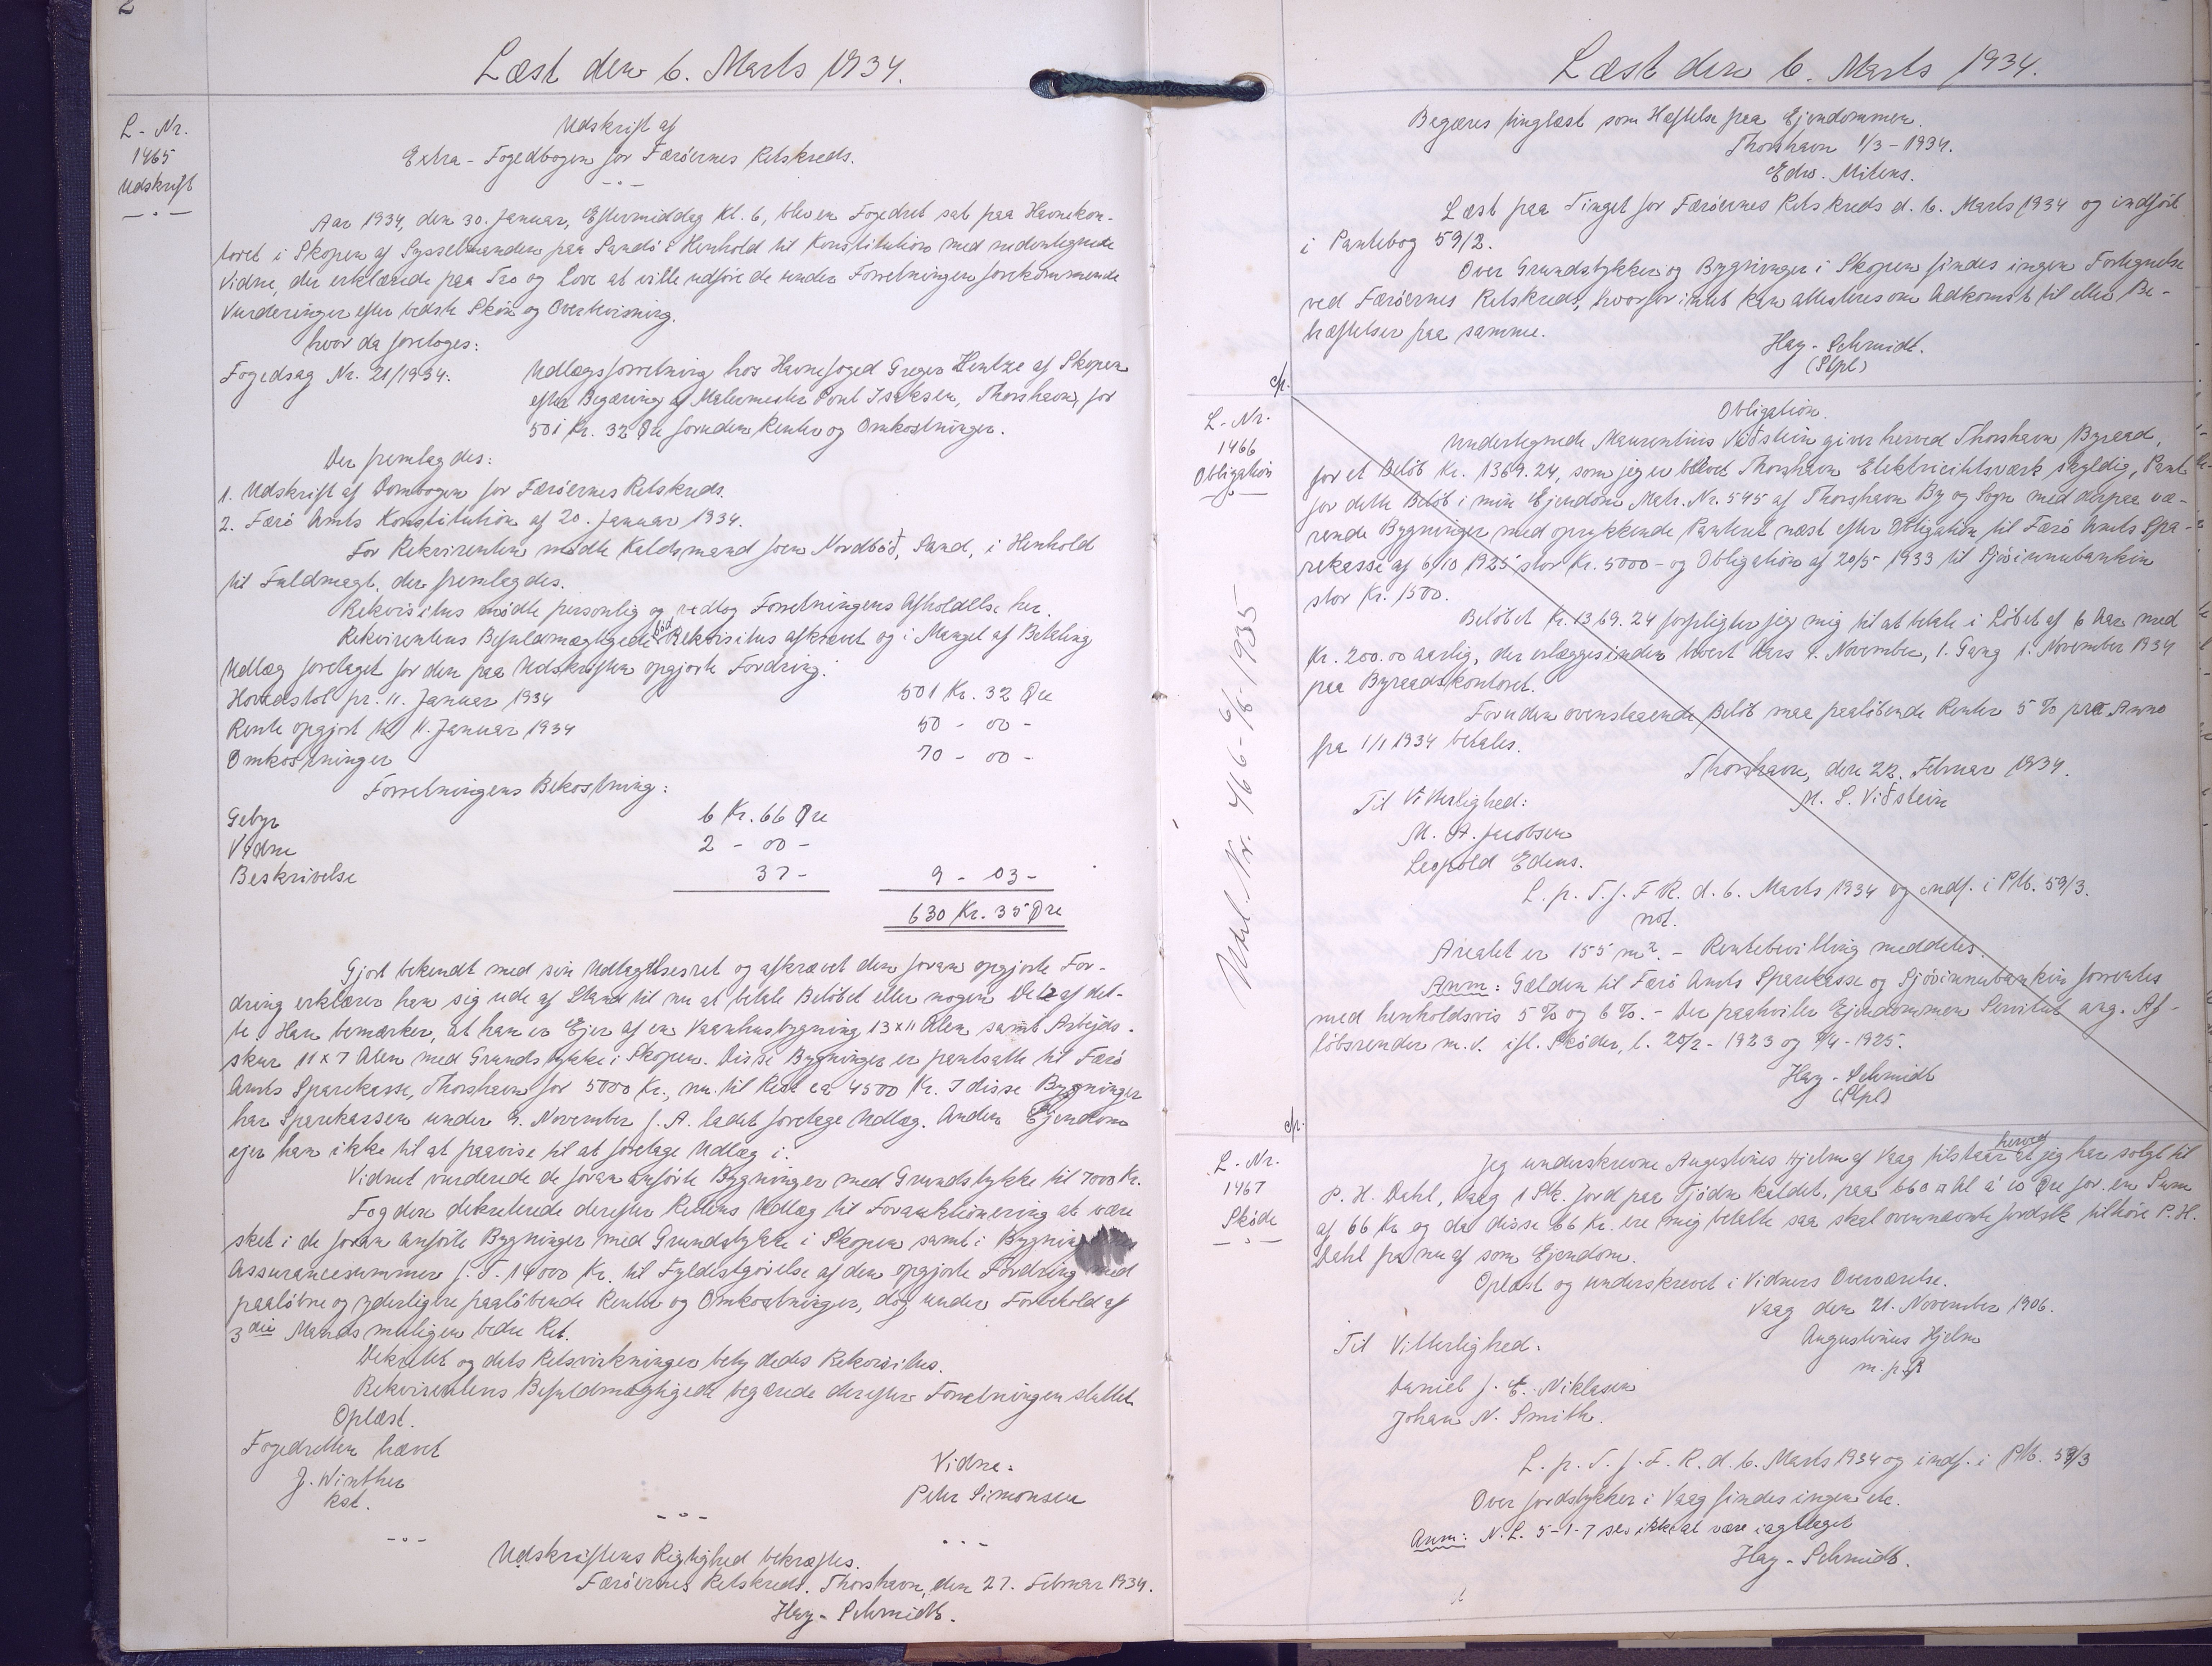 2
Læst den 6. Marts 1934.
L-Nr.
1465
Udskrift
Udskrift af
Extra-Fogedbogen for Færöernes Retskreds.
Aar 1934, den 30. Januar, Eftermiddag Kl. 6, blev en Fogedret sat paa Havnekon-
toret i Skopen af Sysselmanden paa Sandö i Henhold til Konstitution med nedentegnede
Vidne, der erklærede paa Tro og Love at ville udföre de under Forretningen forekommende
Vurderinger efter bedste Skön og Overbevisning.
hvor da foretoges:
Fogedsag Nr. 21/1934: Udlægsforretning hos Havnefoged Greger Hentze af Skopen
efter Begæring af Malermester Poul Isaksen, Thorshavn, for
501 Kr. 32 Øre foruden Renter og Omkostninger.
Der fremlagdes:
1. Udskrift af Dombogen for Færöernes Retskreds.
2. Færö Amts Konstitution af 20. Januar 1934.
For Rekvirenten mödte Kaldsmand Joen Nordbúð, Sand, i Henhold
til Fuldmagt, der fremlagdes.
Rekvisitus mödte personlig og vedtog Forretningens Afholdelse her.
Rekvirentens Befuldmægtigede lod Rekvisitus afkrævet og i Mangel af Betaling
Udlæg foretaget for den paa Udskriften opgjorte Fordring:
Hovedstol pr. 11. Januar 1934 501 Kr. 32 Øre
Rente opgjort til 11. Januar 1934 50 - 00 -
Omkostninger 70 - 00 -
Forretningens Bekostning:
Gebyr 6 Kr. 66 Øre
Vidne 2 - 00 -
Beskrivelse 37 - 9 - 03 -
630 Kr. 35 Øre
Gjort bekendt med sin Udlægelsesret og afkrævet den foran opgjorte For-
dring erklærer han sig ude af Stand til nu at betale Belöbet eller nogen Del af det-
te. Han bemærker, at han er Ejer af en Vaanhusbygning 13 x 11 Alen samt Arbejds-
skur 11 x 7 Alen med Grundstykke i Skopen. Disse Bygninger er pantsatte til Færö
Amts Sparekasse, Thorshavn for 5000 Kr., nu til Rest ca 4500 Kr. I disse Bygninger
har Sparekassen under 9. November f. A. ladet foretage Udlæg. Anden Ejendom
ejer han ikke til at paavise til at foretage Udlæg i.
Vidnet vurderede de foran anförte Bygninger med Grundstykke til 7000 Kr.
Fogden dekreterede derefter Retens Udlæg til Forauktionering at være
sket i de foran anförte Bygninger med Grundstykke i Skopen samt i
Assurancesummer f. T. 14000 Kr. til Fyldestgörelse af den opgjorte Fordring med
paalöbne og yderligere paalöbende Renter og Omkostninger, dog under Forbehold af
3die Mands muligen bedre Ret.
Dekretet og dets Retsvirkninger betydedes Rekvisitus.
Rekvirentens Befuldmægtigede begærede derefter Forretningen sluttet
Oplæst.
Fogedretten hævet
J. Winther
kst.
Vidne:
Peter Simonsen
Udskriftens Rigtighed bekræftes.
Færöernes Retskreds. Thorshavn, den 27. Februar 1934.
Hay-Schmidt.
Læst den 6. Marts 1934.
Begæres tinglæst som Hæftelse paa Ejendommen.
Thorshavn 1/3 - 1934.
Edw. Mitens.
Læst paa Tinget for Færöernes Retskreds d. 6. Marts 1934 og indfört
i Pantebog 59/2.
Over Grundstykker og Bygninger i Skopen findes ingen Fortegnelse
ved Færöernes Retskreds, hvorfor intet kan attesteres om Adkomst til eller Be-
hæftelser paa samme.
Hay-Schmidt.
L-Nr.
1466
Obligation
Obligation.
Undertegnede Maurentius Viðstein giver herved Thorshavn Byraad,
for et Belöb Kr. 1369.24, som jeg er blevet Thorshavn Elektricitetsværk skyldig, Pant
for dette Belöb i min Ejendom Matr. Nr. 545 af Thorshavn By og Sogn med derpaa væ-
rende Bygninger med oprykkende Panteret næst efter Obligation til Færö Amts Spa-
rekasse af 6/10 1925 stor Kr. 5000 - og Obligation af 20/5 1933 til Sjóvinnubankin
stor Kr. 1500.
Belöbet Kr. 1369.24 forpligter jeg mig til at betale i Löbet af 6 Aar med
Kr. 200.00 aarlig, der erlægges inden hvert Aars 1. November, 1. Gang 1. November 1934
paa Byraadskontoret.
Foruden ovenstaaende Belöb maa paalöbende Renter 5 % pro Anno
fra 1/1 1934 betales.
Thorshavn, den 22. Februar 1934.
M. S. Viðstein
Til Vitterlighed:
M. A. Jacobsen
Leopold Edens.
L. p. T. f. F. R. d. 6. Marts 1934 og indf. i Ptb. 59/3.
not.
Arealet er 155 m². - Rentebevilling meddeles.
Anm: Gælden til Færö Amts Sparekasse og Sjóvinnubankin forrentes
med henholdsvis 5 % og 6 %. - Der paahviler Ejendommen Servitut ang. Af-
löbsrender m. v. ifl. Skøder, l. 20/2 - 1923 og 7/4 - 1925.
Hay-Schmidt
L-Nr.
1467
Skøde
Jeg underskrevne Augustinus Hjelm af Vaag tilstaar herved at jeg har solgt til
P. H. Dahl, Vaag 1 Stk. Jord paa Tjödn kaldet, paa 660 □ Al á 10 Øre for en Sum
af 66 Kr og da disse 66 Kr. ere mig betalte saa skal ovennævnte Jordstk tilhöre P. H.
Dahl fra nu af som Ejendom.
Oplæst og underskrevet i Vidners Overværelse.
Vaag den 21. November 1906.
Augustinus Hjelm
Til Vitterlighed.
Daniel J. E. Niklasen
Johan N. Smith.
L. p. T. f. F. R. d. 6. Marts 1934 og indf. i Ptb. 59/3
Over Jordstykker i Vaag findes ingen etc.
Anm: N. L. 5-1-7 ses ikke at være iagttaget
Hay-Schmidt.